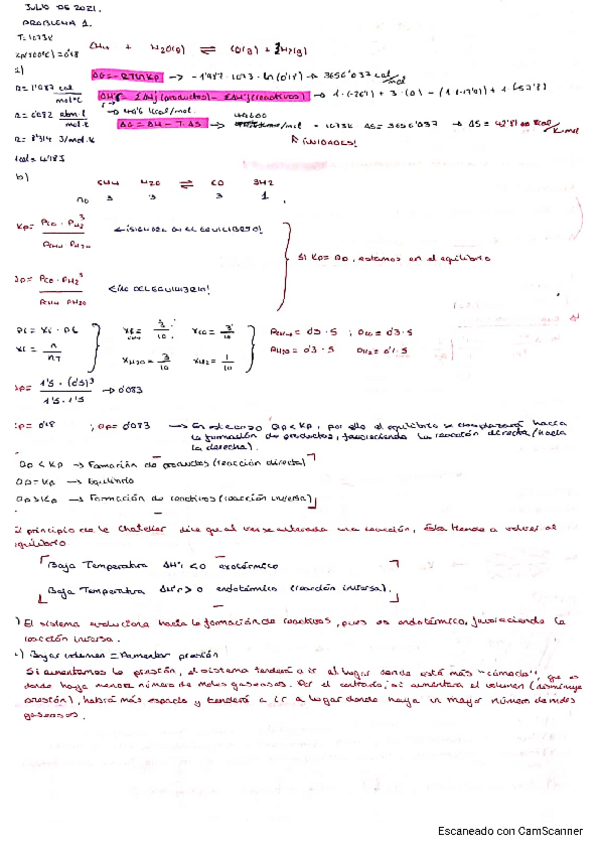 JULIO DE 2021.
PROBLEMA 1.
T=1073K
Kp(800°C)=0'18
CH4 + H2O(g) ⇌ CO(g) + 3H2(g)
a)
ΔG=-RTlnKp → -1'987·1073·ln(0'18) → 3656'037 cal/mol
R=1'987 cal/mol·K
R=0'082 atm·l/mol·K
R=8'314 J/mol·K
1cal=4'18J
ΔG=ΔH-T·ΔS
¡UNIDADES!
b)
CH4 H2O ⇌ CO 3H2
no 3 3 3 1
Kp= PCO·PH2³/PCH4·PH2O
Qp= PCO·PH2³/PCH4·PH2O
Si Kp=Qp, estamos en el equilibrio
Pi=Xi·PG
Xi=n/nT
XCH4=3/10; XCO=3/10
XH2O=3/10 XH2=1/10
PCH4=0'3·5; PCO=0'3·5
PH2O=0'3·5 PH2=0'1·5
Qp=1'5·(0'5)³/1'5·1'5 → 0'083
Kp=0'18; Qp=0'083 → En este caso Qp<Kp, por ello el equilibrio se desplazará hacia
la formación de productos, favoreciendo la reacción directa (hacia
la derecha).
Qp<Kp → Formación de productos (reacción directa)
Qp=Kp → Equilibrio
Qp>Kp → Formación de reactivos (reacción inversa)
El principio de le Chatelier dice que al verse alterada una reacción, ésta tiende a volver al
equilibrio
Baja Temperatura ΔHºr<0 exotérmico
Baja Temperatura ΔHºr>0 endotérmico (reacción inversa).
El sistema evoluciona hacia la formación de reactivos, pues es endotérmico, favoreciendo la
reacción inversa.
c) Bajar volumen = Aumentar presión
Si aumentamos la presión, el sistema tenderá a ir al lugar donde está más "cómodo", que es
donde haya menor número de moles gaseosos. Por el contrario, si aumenta el volumen (disminuye
presión), habrá más espacio y tenderá a ir a lugar donde haya un mayor número de moles
gaseosos.
Escaneado con CamScanner